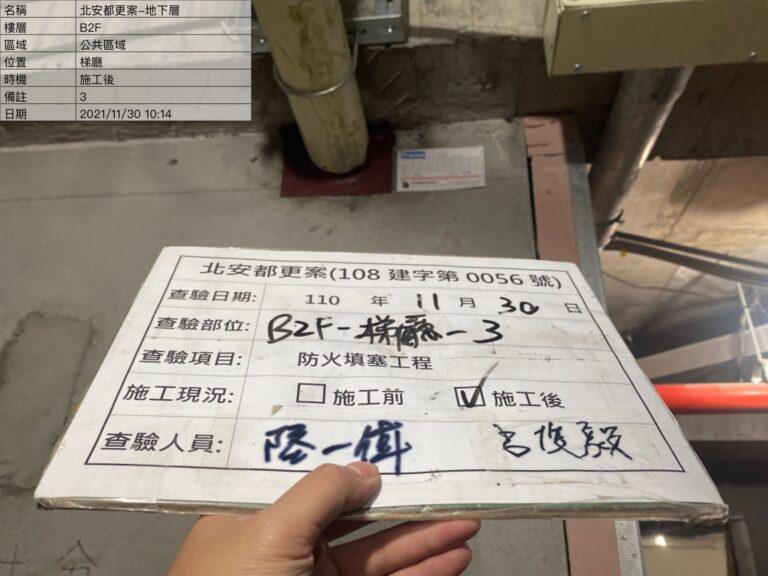 名稱 北安都更案-地下層
樓層 B2F
區域 公共區域
位置 梯廳
時機 施工後
備註 3
日期 2021/11/30 10:14
北安都更案(108 建字第 0056 號)
查驗日期: 110 年 11 月 30 日
查驗部位: B2F-梯廳-3
查驗項目: 防火填塞工程
施工現況: □ 施工前 ☑ 施工後
查驗人員: